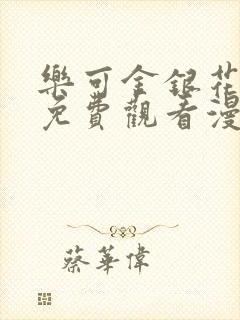 樂可金銀花
免費觀看漫
蔡華偉